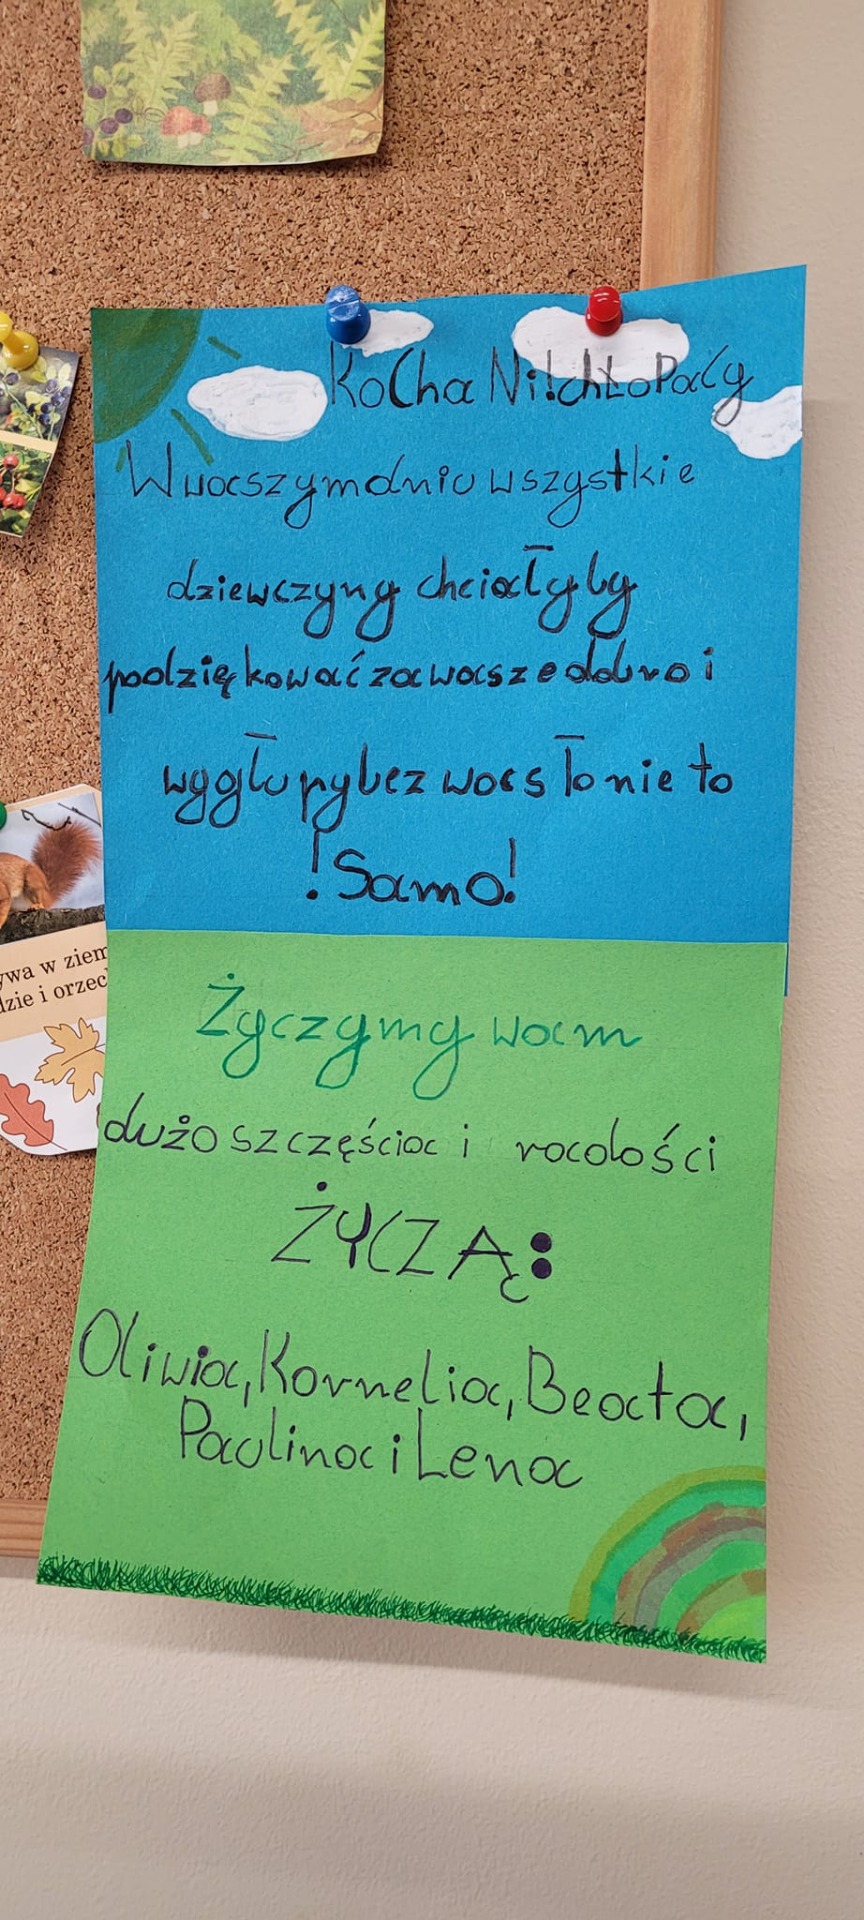 KoCha Ni!chŁoPaCy
W waszym dniu wszystkie
dziewczyny chciałyby
podziękować za wasze dobro i
wygłupy bez was to nie to
!Samo!
ywa w ziem
dzie i orzech
Życzymy wam
dużo szczęścia i radości
ŻYCZĄ:
Oliwia, Kornelia, Beata,
Paulina i Lena